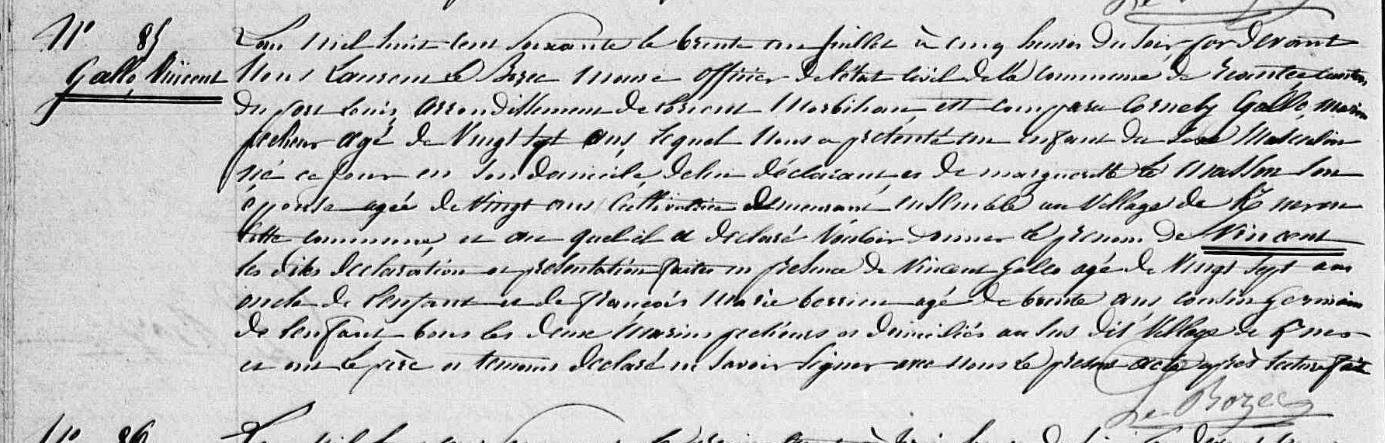 N° 85
Gallo Vincent
L'an mil huit cent soixante le trente un juillet à cinq heures du soir par devant
Nous Laurent Le Bozec Maire officier de l'état civil de la commune de canton
du port Louis arrondissement de Lorient Morbihan est comparu Cornely Gallo marin
pêcheur agé de Vingt sept ans, lequel Nous a présenté un enfant du sexe Masculin
né ce jour en son domicile de lui déclarant et de marguerite le Masson son
épouse agée de Vingt ans Cultivatrice demeurant ensemble au Village de
cette commune et au quel il a déclaré Vouloir donner le prénom de Vincent
les dites déclaration et présentation faites en présence de Vincent Gallo agé de Vingt sept ans
oncle de l'enfant et de françois Marie agé de trente ans cousin germain
de l'enfant tous les deux Marins pecheurs et domiciliés au sus dit Village de
et ont le père et temoins déclaré ne savoir signer avec nous le présent acte après lecture fait
Le Bozec
N° 86